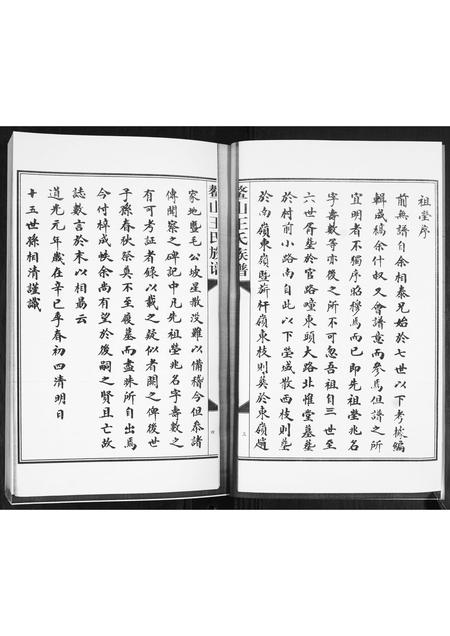 祖塋序
前無譜自余相泰兄始於七世以下考據編
輯成稿余什叔又會譜意而參焉但譜之所
宜明者不獨序昭穆焉而已即先祖塋兆名
字壽數等亦後之所不可忽吾祖自三世至
六世胥塋於官路嶂東頭大路北惟堂墓墓
於村前小路南自此以下塋域散西枝則墓
於南嶺東嶺暨薪杆嶺東枝則葬於東嶺趙
鳌山王氏族谱
三
鳌山王氏族谱
四
家地暨毛公坡星散沒難以備稽今但恭諸
傳聞察之碑記中凡先祖塋兆名字壽數之
有可考証者錄以載之疑似者闕之俾後世
子孫春秋祭奠不至履墓而盡昧所自出焉
今付梓成帙余尚有望於後嗣之賢且亡故
誌數言於末以相勗云
道光元年歲在辛巳季春初四清明日
十五世孫相清謹識